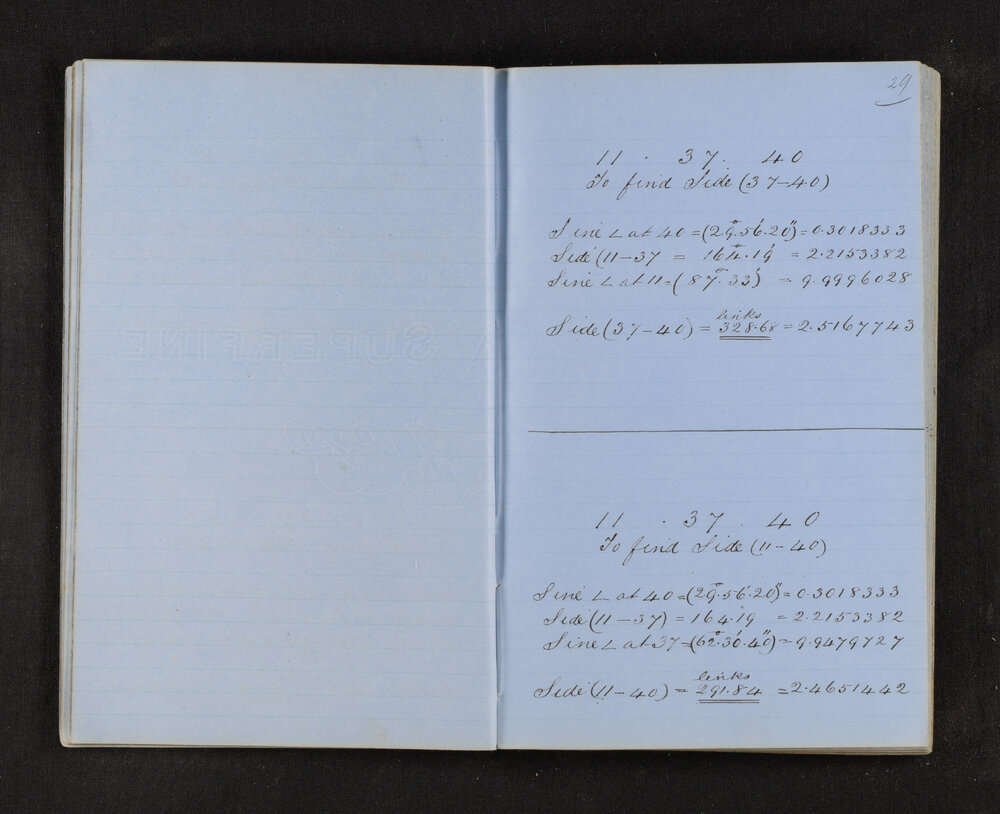 29
11 . 37. 40
To find Side (37-40)
Sine ∠ at 40 = (29°.56'.20") = 0.3018333
Side (11-37 = 164.19 = 2.2153382
Sine ∠ at 11 = (87°.33') = 9.9996028
links
Side (37-40) = 328.68 = 2.5167743
11 . 37 . 40
To find Side (11-40)
Sine ∠ at 40 = (29°.56'.20") = 0.3018333
Side (11-37) = 164.19 = 2.2153382
Sine ∠ at 37 = (62°.30'.40") = 9.9479727
links
Side (11-40) = 291.84 = 2.4651442